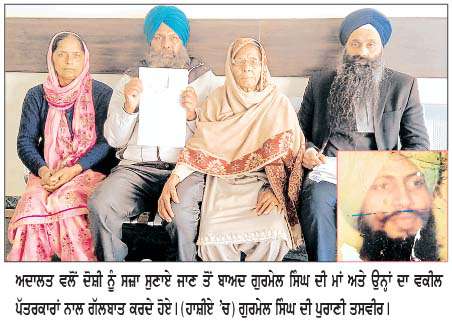 ਅਦਾਲਤ ਵਲੋਂ ਦੋਸ਼ੀ ਨੂੰ ਸਜ਼ਾ ਸੁਣਾਏ ਜਾਣ ਤੋਂ ਬਾਅਦ ਗੁਰਮੇਲ ਸਿੰਘ ਦੀ ਮਾਂ ਅਤੇ ਉਨ੍ਹਾਂ ਦਾ ਵਕੀਲ
ਪੱਤਰਕਾਰਾਂ ਨਾਲ ਗੱਲਬਾਤ ਕਰਦੇ ਹੋਏ। (ਹਾਸ਼ੀਏ 'ਚ) ਗੁਰਮੇਲ ਸਿੰਘ ਦੀ ਪੁਰਾਣੀ ਤਸਵੀਰ।